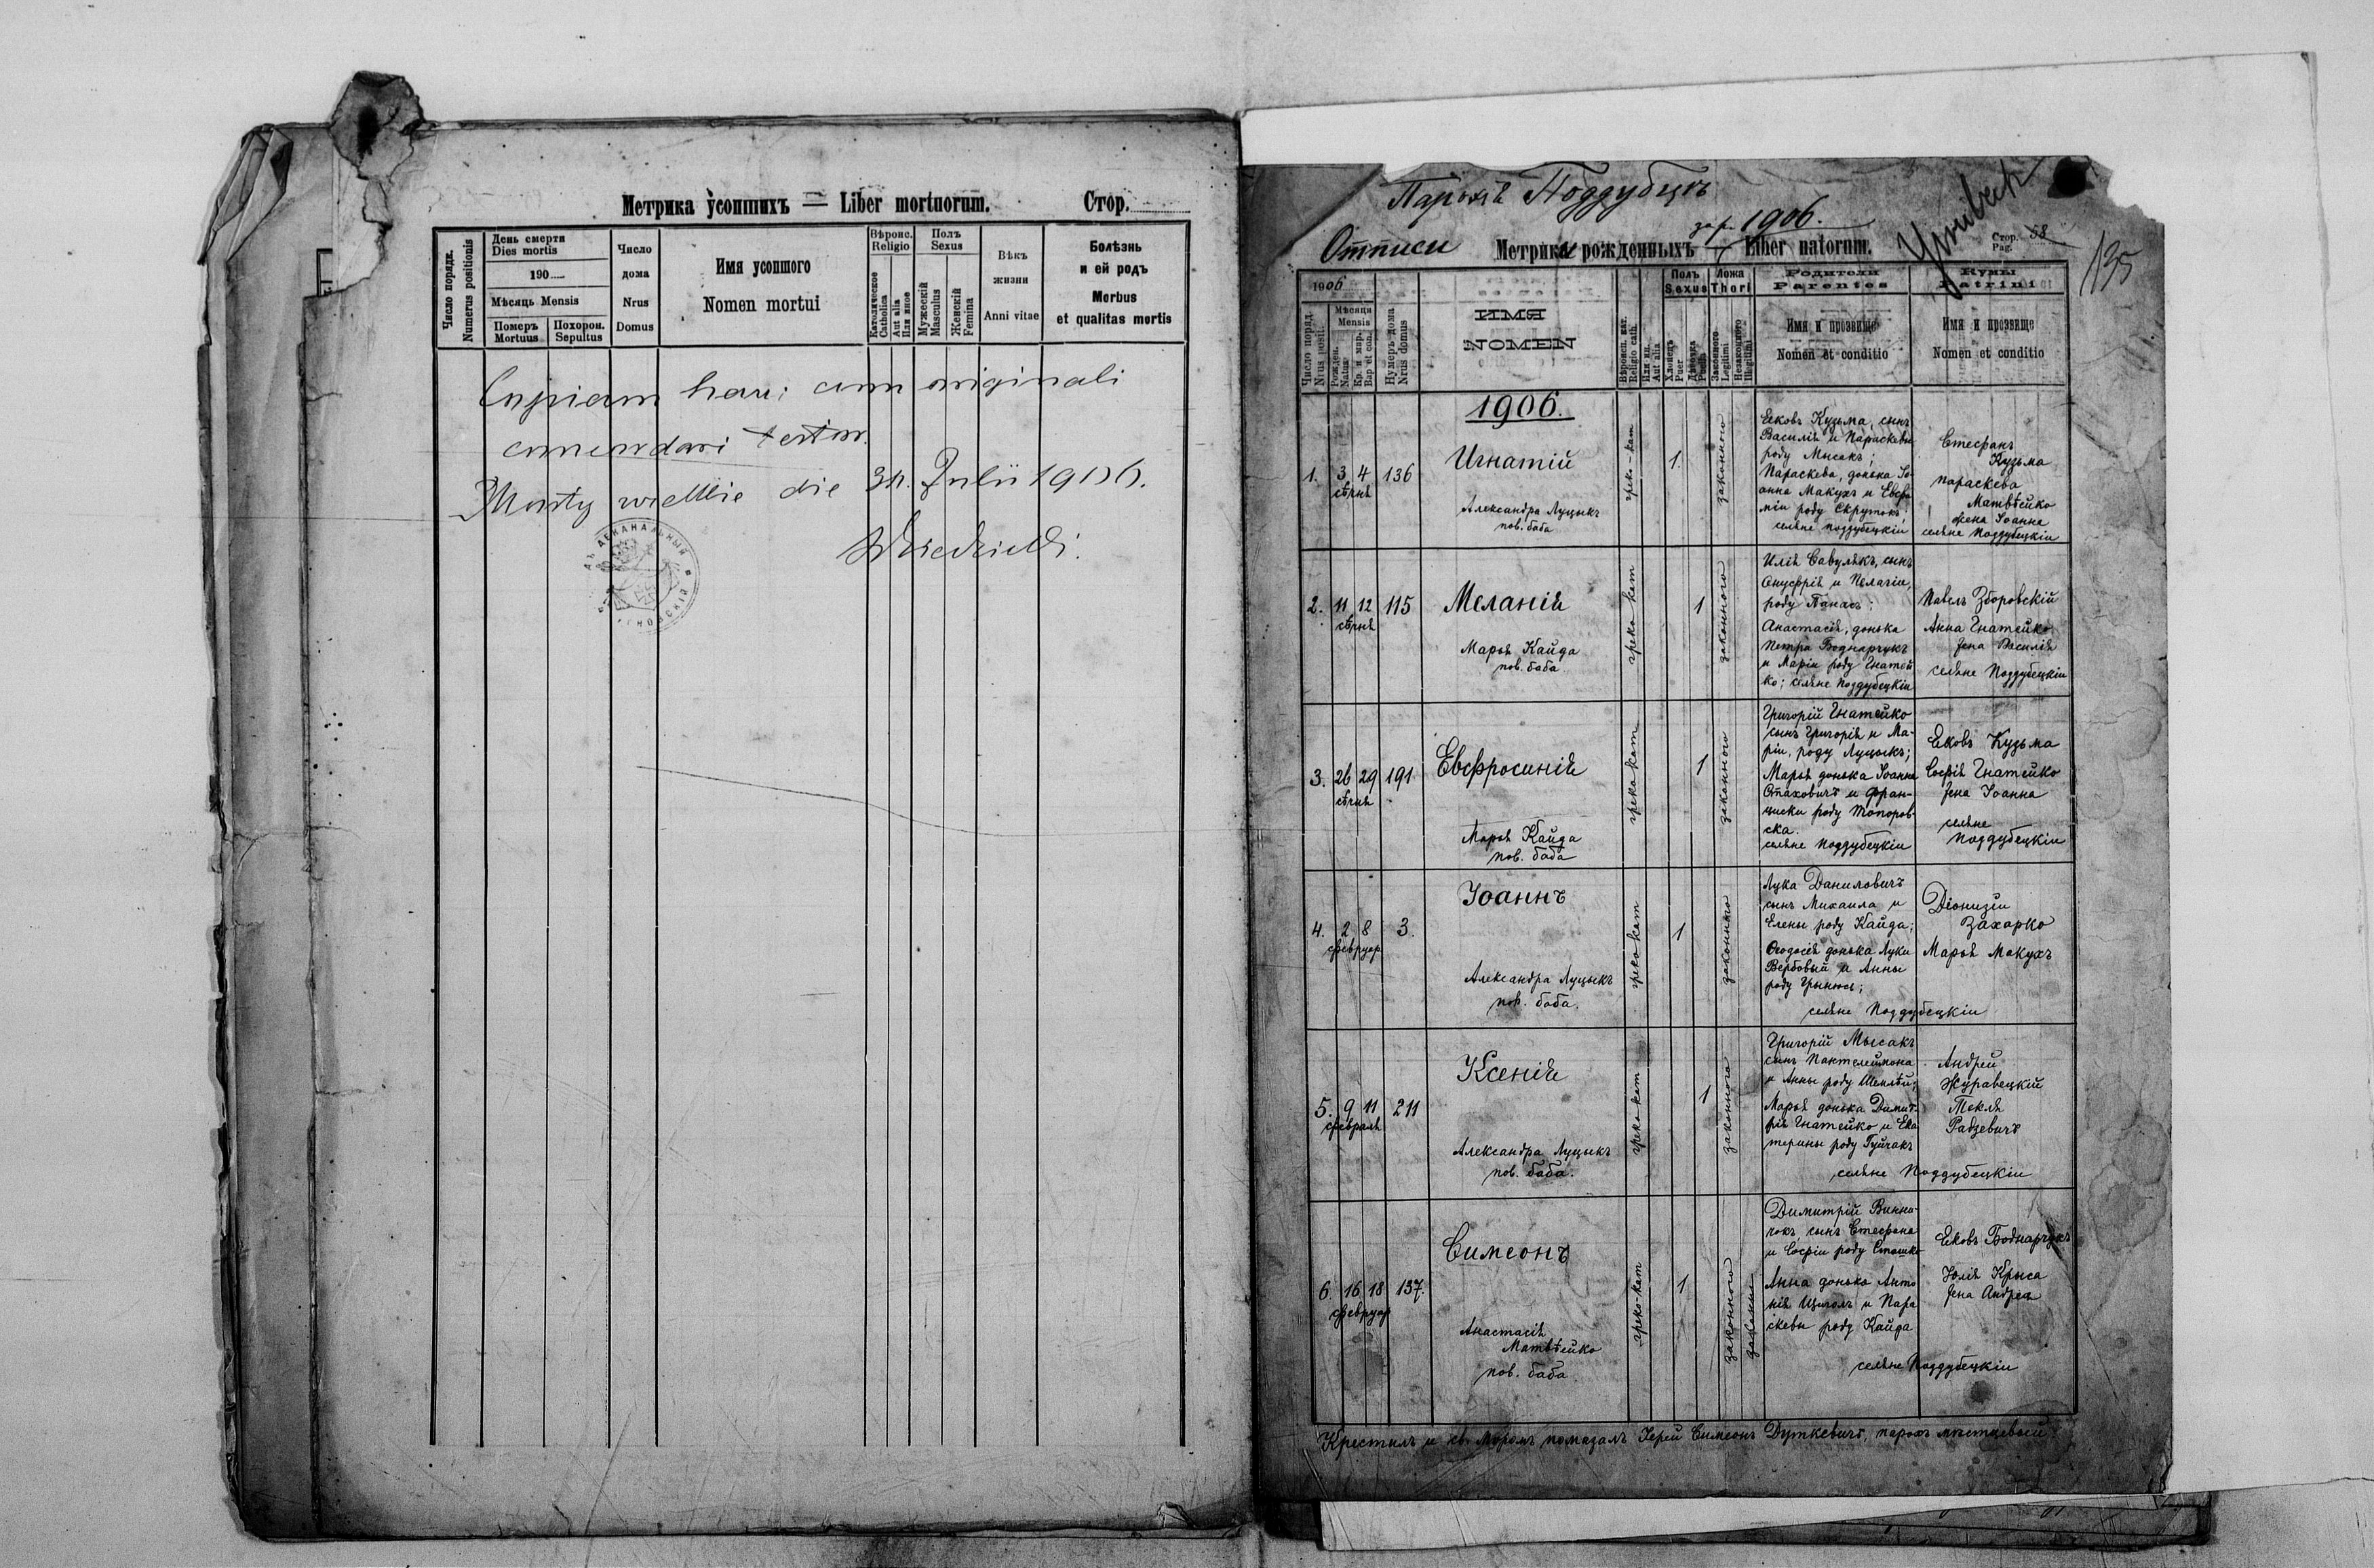 Метрика ўсопшихъ — Liber mortuorum. Стор.
Число порядк.
Numerus positionis
День смерти
Dies mortis
190
Мѣсяць Mensis
Померъ
Mortuus
Похорон.
Sepultus
Число
дома
Nrus
Domus
Имя усопшого
Nomen mortui
Вѣроис.
Religio
Католическое
Catholica
Aut alia
Или иное
Полъ
Sexus
Мужескій
Masculus
Женскій
Femina
Вѣкъ
жизни
Anni vitae
Болѣзнь
и ей родъ
Morbus
et qualitas mortis
Copiam hanc cum originali
concordari testor.
Mosty wielkie die 31. Julii 1906.
Парохія Поддубецкъ
за р. 1906.
Отписи Метрики рожденныхъ — Liber natorum.
Стор. 58
Pag.
135
1906
Число поряд.
Nrus posit.
Мѣсяця
Mensis
Рожден.
Natus
Кр. и мѵр.
Bap et con.
Нумеръ дома
Nrus domus
ИМЯ
NOMEN
Вѣроисп. кат.
Religio cath.
Или ин.
Aut alia
Полъ
Sexus
Хлопецъ
Puer
Дѣвочка
Puella
Ложа
Thori
Законного
Legitimi
Незаконного
Illegitimi
Родители
Parentes
Имя и прозвище
Nomen et conditio
Кумы
Patrini
Имя и прозвище
Nomen et conditio
1906.
1. 3 4 136
сѣчня
Игнатій
Александра Луцыкъ
пов. баба
греко-кат
1.
законного
Яковъ Кузьма, сынъ
Василія и Параскевы
роду Мысакъ;
Параскева, донька Іо-
анна Макухъ и Евфи-
міи роду Скрутокъ;
селяне поддубецкіи
Стефанъ
Кузьма
Параскева
Матвѣйко
жена Іоанна
селяне Поддубецкіи
2. 11 12 115
сѣчня
Меланія
Марья Кайда
пов. баба
греко кат
1
законного
Илія Савулякъ, сынъ
Онуфрія и Пелагіи,
роду Панасъ;
Анастасія, донька
Петра Боднарчукъ
и Маріи роду Гнатей
ко; селяне поддубецкіи
Павелъ Зборовскій
Анна Гнатейко
жена Василія
селяне Поддубецкіи
3. 26 29 191
сѣчня
Евфросинія
Марья Кайда
пов. баба
греко кат
1
законного
Григорій Гнатейко
сынъ Григорія и Ма-
ріи, роду Луцыкъ;
Марья донька Іоанна
Стаховичъ и Фран-
циски роду Топоров-
ска.
селяне поддубецкіи
Яковъ Кузьма
Софія Гнатейко
жена Іоанна
селяне
поддубецкіи
4. 2 8 3.
февруар
Іоаннъ
Александра Луцыкъ
пов. баба.
греко кат
1
законного
Лука Даниловичъ
сынъ Михаила и
Елены роду Кайда;
Ѳеодосія донька Луки
Вербовый и Анны
роду Грынюсь;
селяне Поддубецкіи
Діонизій
Захарко
Марья Макухъ
5. 9 11 211
февраля
Ксенія
Александра Луцыкъ
пов. баба.
греко кат
1
законного
Григорій Мысакъ
сынъ Пантелеймона
и Анны роду
Марья донька Димит
рія Гнатейко и Ека
терины роду
селяне Поддубецкіи
Андрей
Журавецкій
Текля
Радзевичъ
6. 16 18 137.
февруар
Симеонъ
Анастасія
Матвѣйко
пов. баба
греко-кат
1
законного
Димитрій Винни-
чокъ, сынъ Стефана
и Софіи роду Сташко
Анна донька Анто
нія и Пара
скевы роду Кайда
селяне Поддубецкіи
Яковъ Боднарчукъ
Юлія Крыса
жена Андрея
Крестилъ и св. Мѵромъ помазалъ Іерей Симеонъ Дуткевичъ, парохъ мѣстцевый